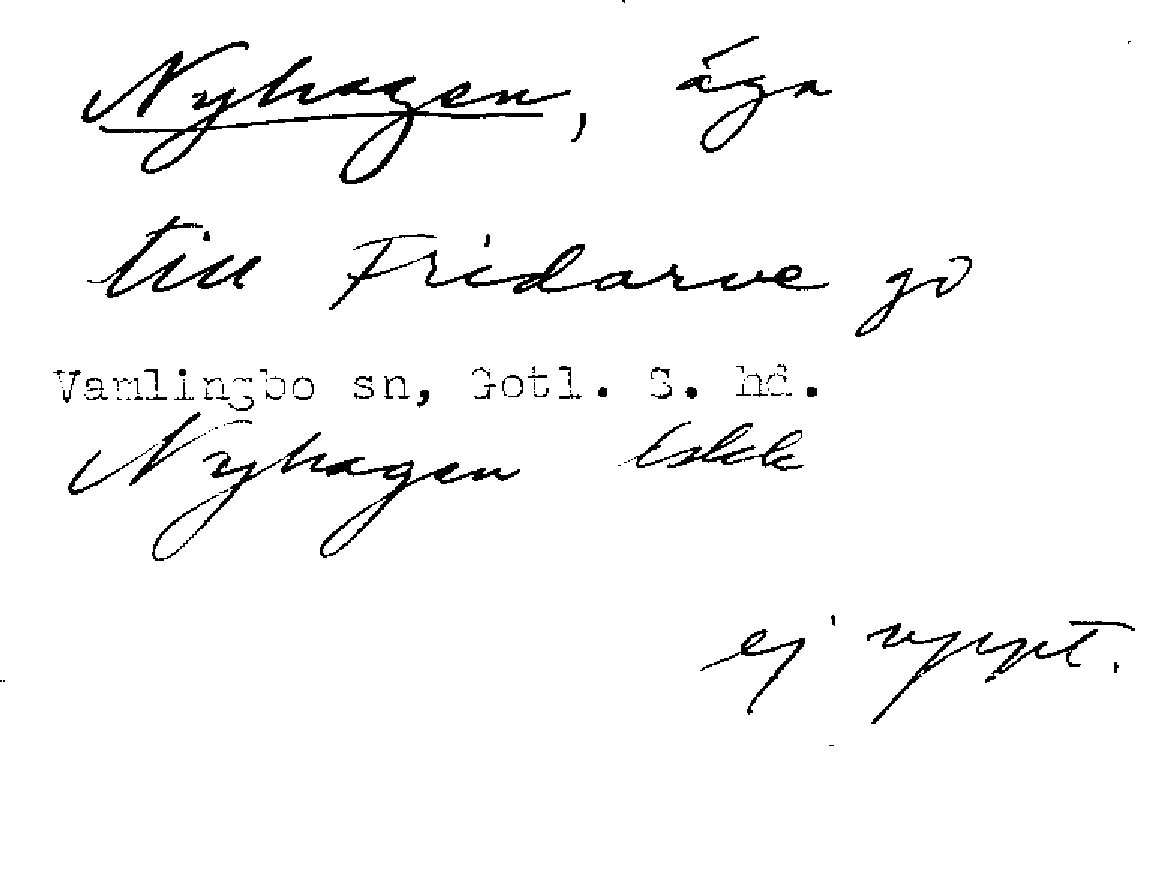 Nyhagen, äga
till Fridarve gd
Vamlingbo sn, Gotl. S. hd.
Nyhagen Eskk
ej uppt.